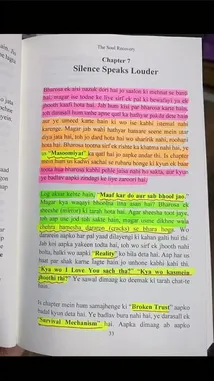 The Soul Recovery
Chapter 7
Silence Speaks Louder
Bharosa ek aisi nazuk dori hai jo saalon ki mehnat se bunti
hai, magar ise todne ke liye sirf ek pal ki bewafayi ya ek
jhooth kaafi hota hai. Jab hum kisi par bharosa karte hain,
toh darasal hum
aur ye umeed karte hain ki wo ise kabhi istemal nahi
karenge. Magar jab wahi hathyar hamare seene mein utar
diya jata hai, toh jo dard hota hai wo sharirik nahi, roohani
hota hai. Bharosa tootna sirf ek rishte ka khatma nahi hai, ye
us "Masoomiyat" ka qatl hai jo aapke andar thi. Is chapter
mein hum us zakhm
toota hua bharosa kabhi pehle jaisa nahi ho sakta, aur kyu
ye badlav aapki zindagi ke liye zaroori hai.
Log aksar kehte hain, "Maaf kar do aur sab bhool jao."
Magar kya waqayi bhoolna itna asan hai? Bharosa ek
sheeshe (mirror) ki tarah hota hai. Agar sheesha toot jaye,
toh aap use jod sakte hain, magar usme dikhne wala
chehra hamesha daraaron (cracks) se bhara hoga. Wo
daraarein aapko har pal yaad dilayengi ki kahan galti hui thi.
Jab koi aapka yakeen todta hai, toh wo sirf jhooth nahi
bolta, balki wo aapki "Reality" ko hila deta hai. Aap har us
baat par shak karne lagte hain jo unhone kabhi kahi thi.
"Kya wo I Love You sach tha?" "Kya wo kasmein
jhoothi thi?" Ye sawal dimaag ko deemak ki tarah chat-te
hain.
Is chapter mein hum samajhenge ki "Broken Trust" aapko
badal kyun deta hai. Ye badlav bura nahi hai, ye darasal ek
"Survival Mechanism" hai. Aapka dimaag ab aapko
33